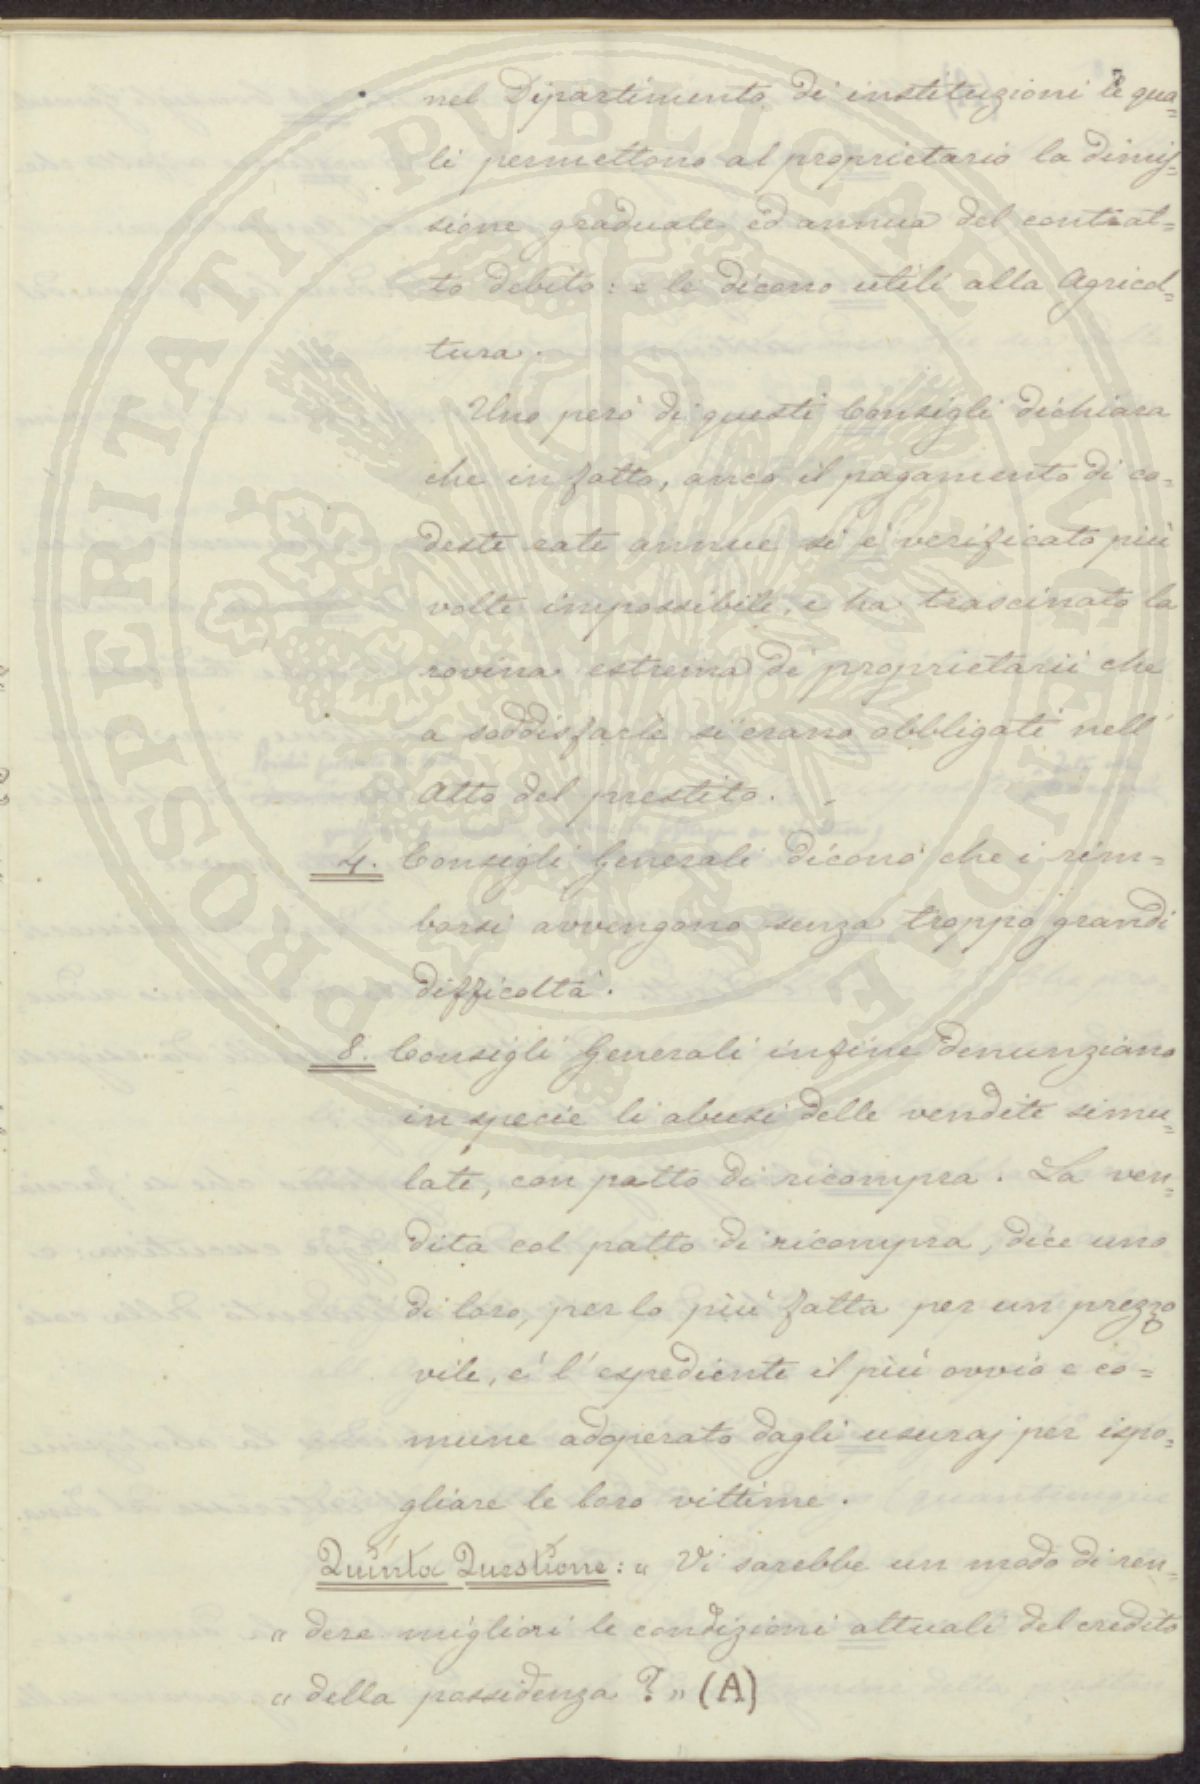 7
nel Dipartimento di instituzioni le qua=
li permettono al proprietario la dimis=
sione graduale ed annua del contrat=
to debito: e le dicono utili alla Agricol=
tura.
Uno però di questi Consigli dichiara
che in fatto, anco il pagamento di co=
deste rate annue si è verificato più
volte impossibile, e ha trascinato la
rovina estrema di proprietarii che
a soddisfarle si erano obbligati nell'
Atto del prestito.
4. Consigli Generali dicono che i rim=
borsi avvengono senza troppo grandi
difficoltà.
8. Consigli Generali infine denunziano
in specie li abusi delle vendite simu=
late, con patto di ricompra. La ven=
dita col patto di ricompra, dice uno
di loro, per lo più fatta per un prezzo
vile, è l'espediente il più ovvio e co=
mune adoperato dagli usuraj per ispo=
gliare le loro vittime.
Quinta Questione: « Vi sarebbe un modo di ren=
« dere migliori le condizioni attuali del credito
« della possidenza? » (A)
PROSPERITATI PUBLICAE AUGENDAE